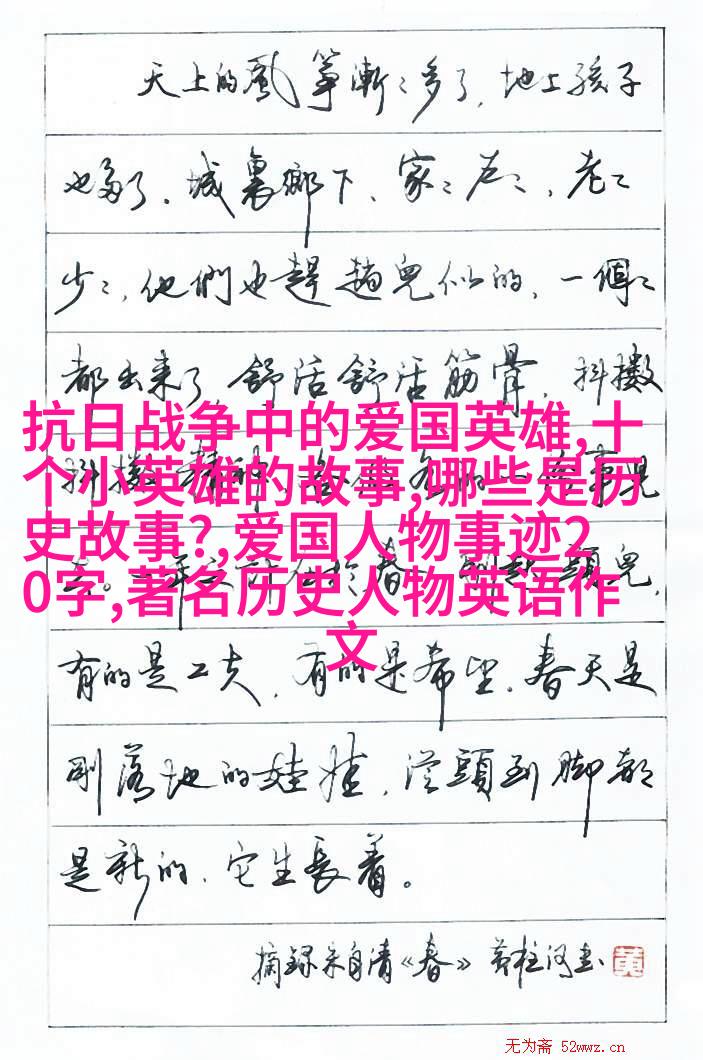 天上的風箏漸〻多了，地上孩子
也多了。城裏鄉下、家〻戶〻，老〻
少〻，他們也趕趟兒似的，一個〻
都出来了。舒活舒活筋骨，抖擻
抗日战争中的爱国英雄,十
个小英雄的故事,哪些是历
史故事?,爱国人物事迹2
0字,著名历史人物英语作
文
抖擻精神
事兒
有的是工夫，有的是希望。春天是
剛落地的娃娃，從頭到脚都
是新的，它生長着。
摘録朱自清《春》 黄
黄
无为斋 52wwz.cn